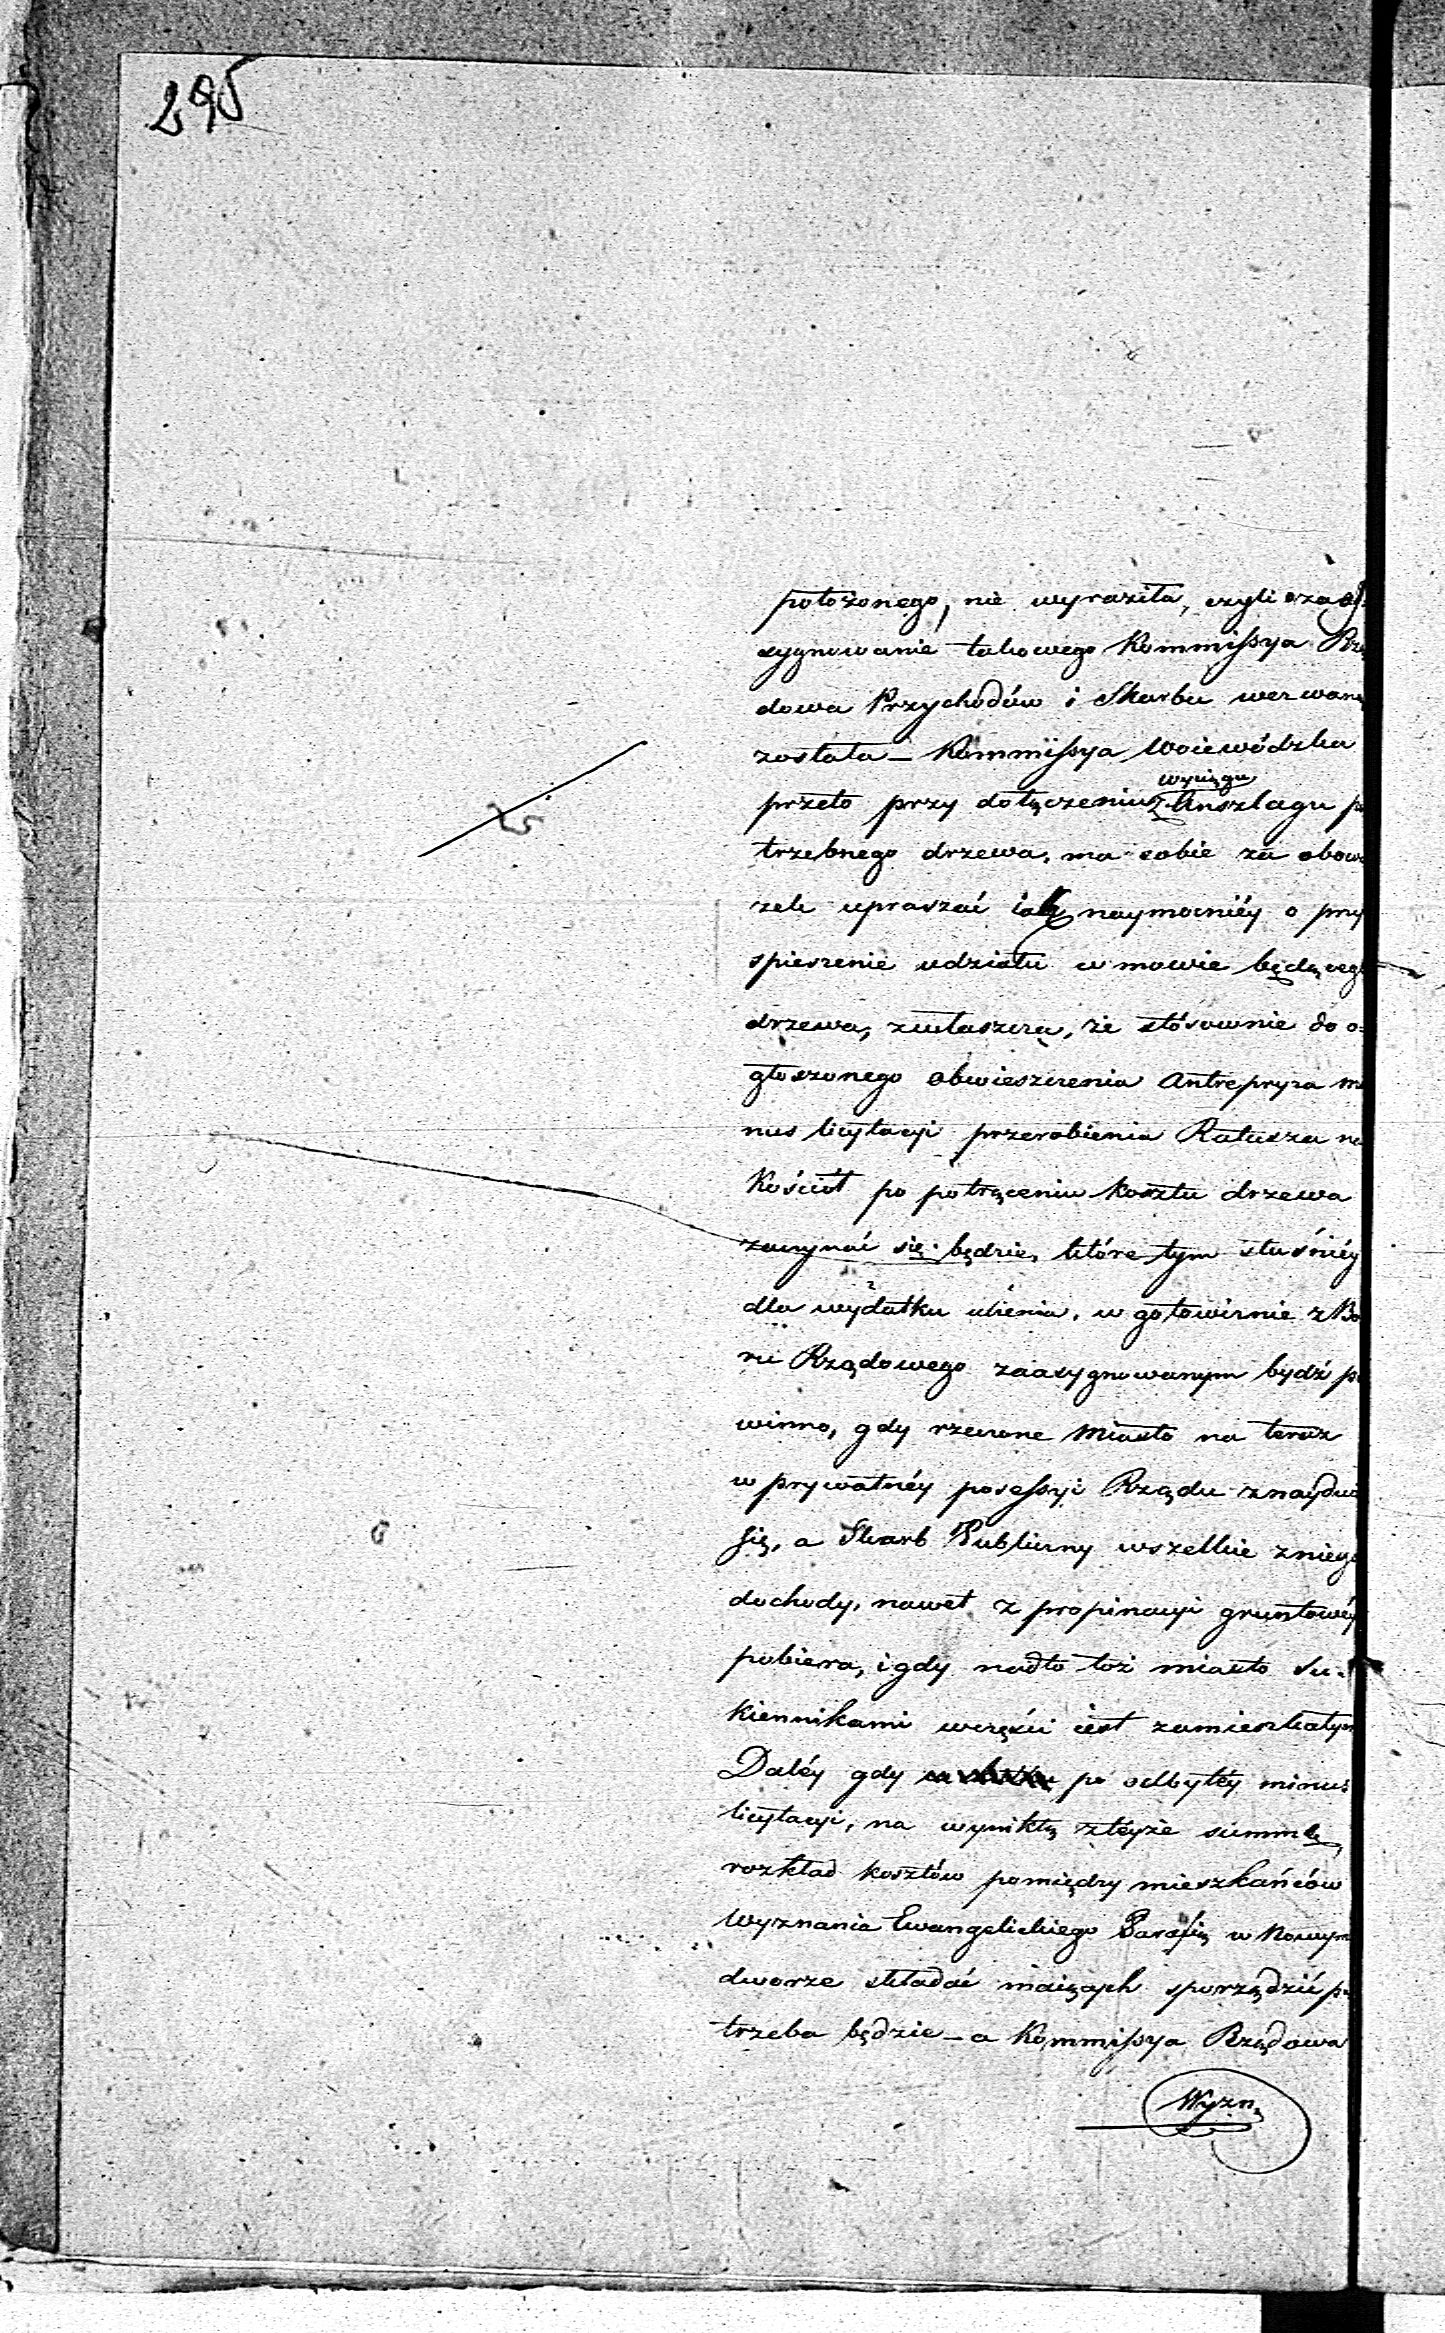 295
położonego, nie wyraziła, czyli o za
sygnowanie takowego Kommissya Rzą
dowa Przychodów i Skarbu wezwaną
została – Kommissya Woiewódzka
wyciągu
przeto przy dołączeniu z Anszlagu po
trzebnego drzewa, ma sobie za obowią
zek upraszać iak naymocniéy o przy
spieszenie udziału w mowie będącego
drzewa, zwłaszcza, że stósownie do o-
głoszonego obwieszczenia Antrepryza mi
nus licytacyi przerobienia Ratusza na
Kościół po potrąceniu kosztu drzewa
zaczynać się będzie, które tym słuśniéy
dla wydatku w gotowiznie z Bo
ru Rządowego zaasygnowanym bydź po
winno, gdy rzeczone Miasto na teraz
w prywatnéy possessyi Rządu znayduie
się, a Skarb Publiczny wszelkie z niego
dochody, nawet z propinacyi gruntowéy
pobiera, i gdy nadto toż miasto Su-
kiennikami w części iest zamieszkałym
Daléy gdy po odbytéy minus
licytacyi, na wynikłą z téyże summę,
rozkład kosztów pomiędzy mieszkańców
Wyznania Ewangelickiego Parafią w Nowym
dworze składać maiących sporządzić po
trzeba będzie – a Kommissya Rządowa
Wyzn.